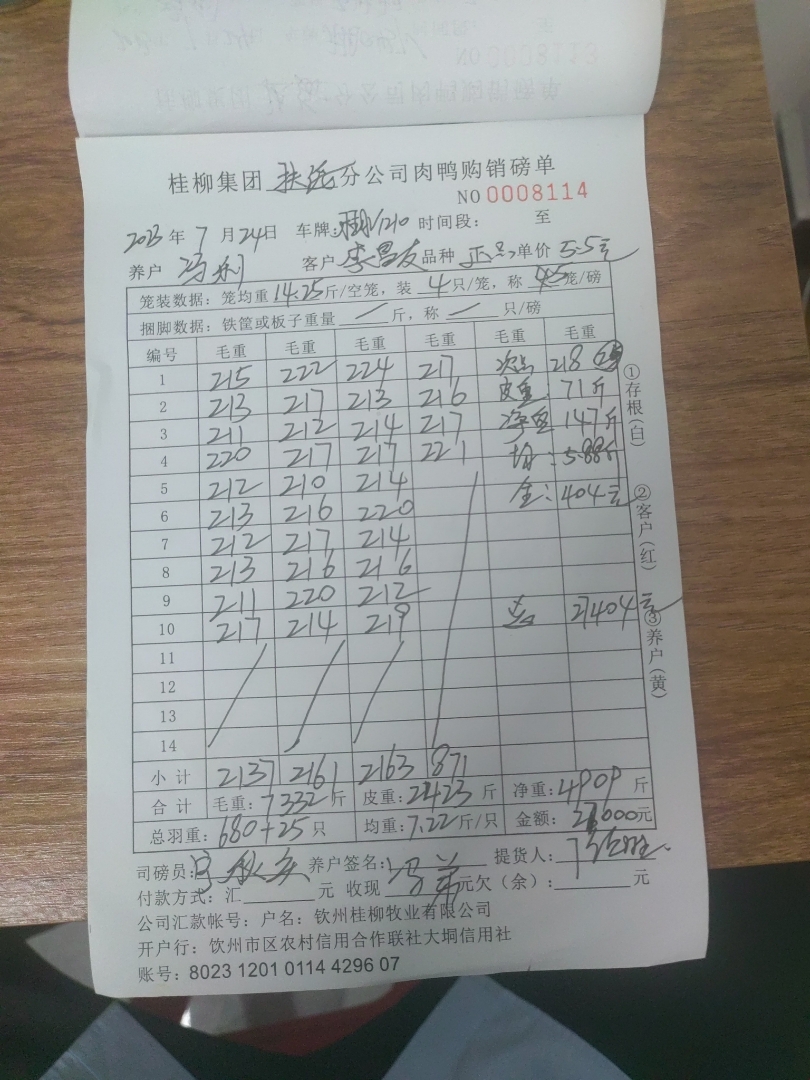 桂柳集团 扶绥 分公司肉鸭购销磅单
NO 0008114
2023 年 7 月 24 日 车牌: 1210 时间段: 至
养户 冯利 客户 李昌友 品种 正品 单价 5.5元
笼装数据: 笼均重 14.25 斤/空笼, 装 4 只/笼, 称 笼/磅
捆脚数据: 铁筐或板子重量 / 斤, 称 / 只/磅
编号 毛重 毛重 毛重 毛重 毛重 毛重
1 215 222 224 217 次品 218
2 213 217 213 216 皮重: 71斤
3 211 212 214 217 净重 147斤
4 220 217 217 221 均: 5.88斤
5 212 210 214 金: 404元
6 213 216 220
7 212 217 214
8 213 216 216
9 211 220 212
10 217 214 219 总 27404元
11
12
13
14
小计 2137 2161 2163 871
合计 毛重: 7332 斤 皮重: 2423 斤 净重: 4909 斤
总羽重: 680+25 只 均重: 7.22 斤/只 金额: 27000 元
司磅员: 养户签名: 冯 提货人:
付款方式: 汇 元 收现 元欠(余): 元
公司汇款帐号: 户名: 钦州桂柳牧业有限公司
开户行: 钦州市区农村信用合作联社大垌信用社
账号: 8023 1201 0114 4296 07
①存根(白)
②客户(红)
③养户(黄)